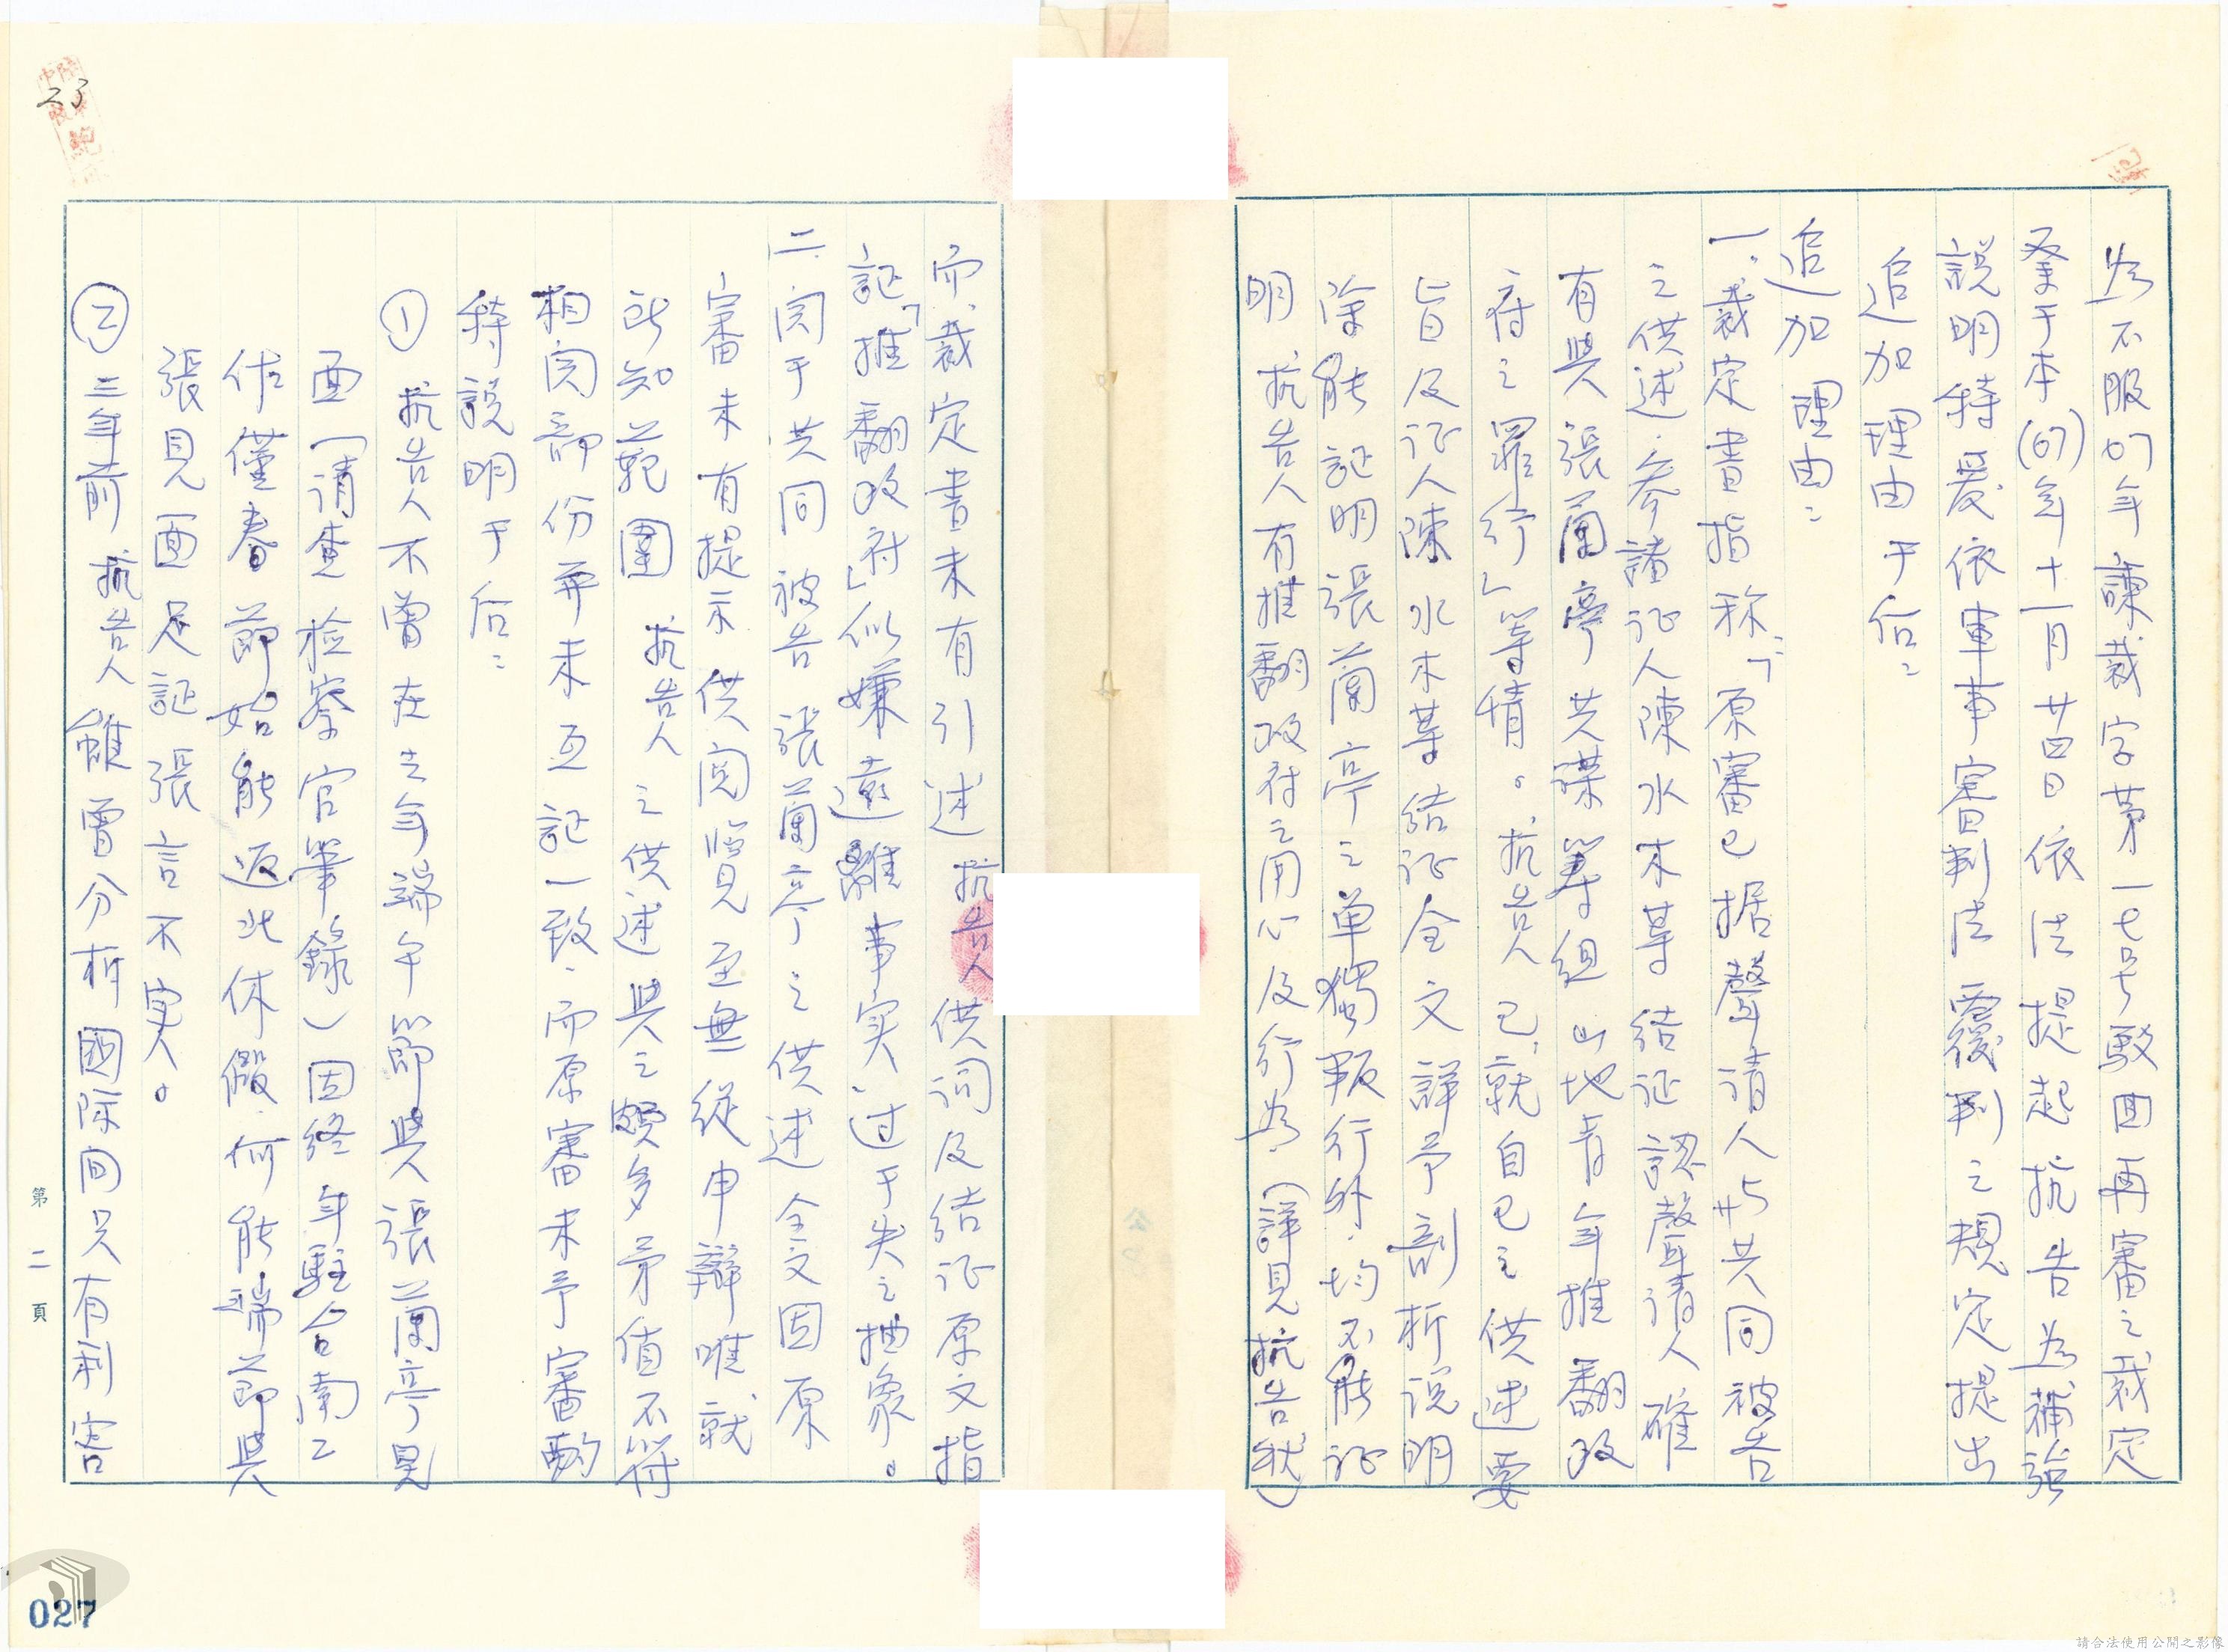 為不服67年諫裁字第一七号駁回再審之裁定
爰于本(67)年十一月廿四日依法提起抗告為補強
說明特爰依軍事審判法覆判之規定提出
追加理由于后：
追加理由：
一.裁定書指称「原審已据聲請人与共同被告
之供述.參諸证人陳水木等结证認聲請人確
有與張蘭亭共謀籌組山地青年推翻政
府之罪行」等情。抗告人已就自己之供述要
旨及证人陳水木等结证全文詳予剖析说明
除能証明張蘭亭之单獨叛行外.均不能证
明抗告人有推翻政府之用心及行為.(詳見抗告狀)
而.裁定書未有引述抗告人供词及结证原文指
証「推翻政府」似嫌遠離事实.过于失之抽象。
二.関于共同被告張蘭亭之供述全文因原
審未有提示供閲覽至無從申辯唯就
所知範圍抗告人之供述與之頗多矛值不符
相関部份并未互証一致.而原審未予審酌
特說明于后：
①抗告人不曾在去年端午節與張蘭亭見
面(请查检察官筆錄)因終年駐台南工
作僅春節始能返北休假.何能端節與
張見面足証張言不实。
②三年前抗告人雖曾分析國际间只有利害
第二頁
23
027
請合法使用公開之影像